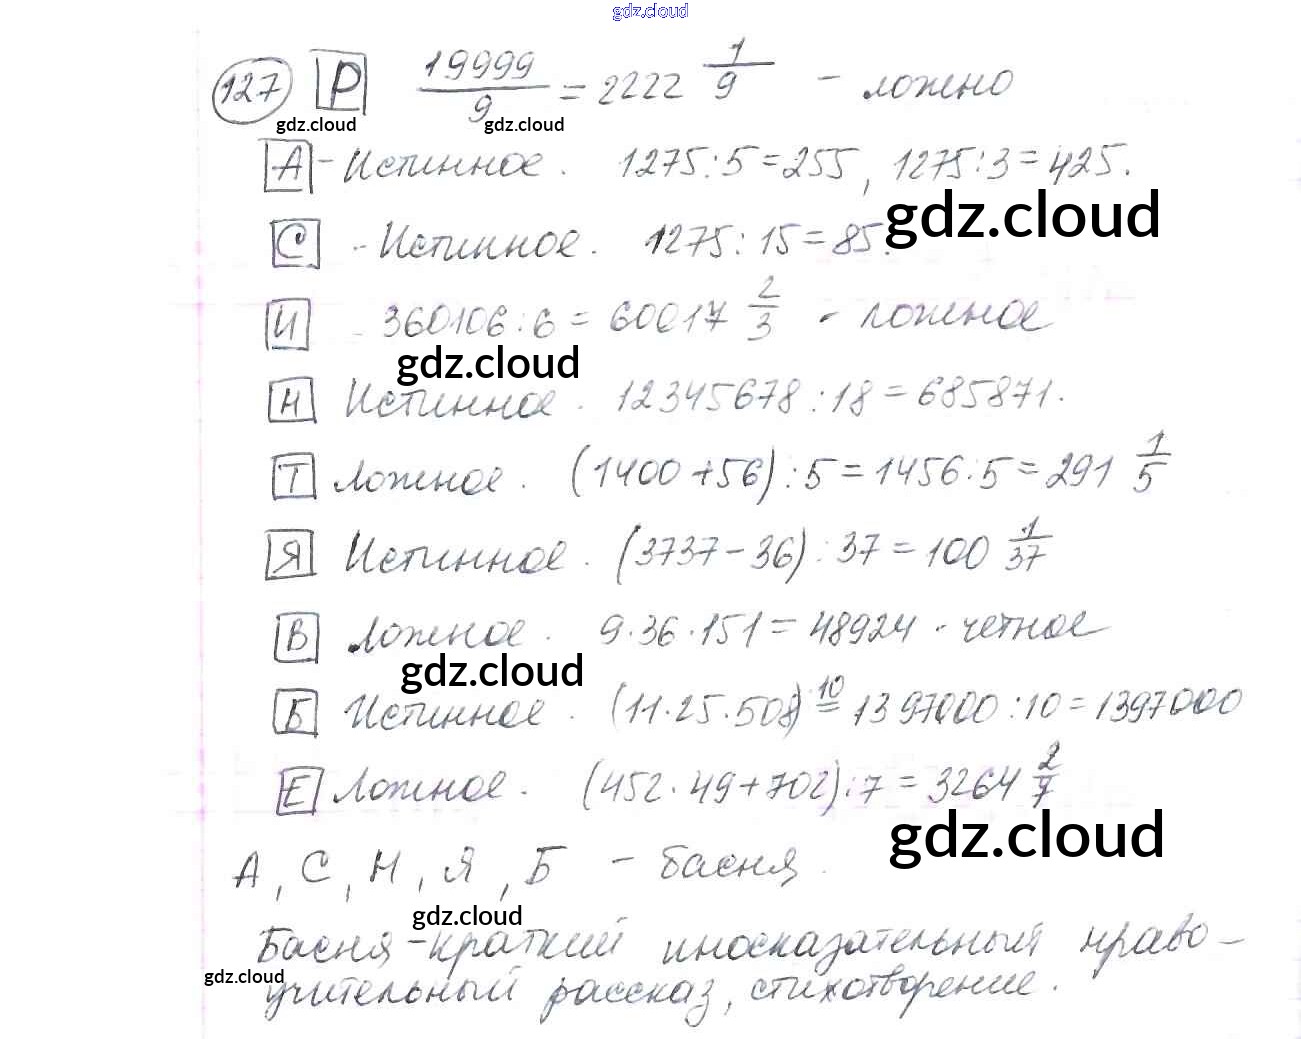 gdz.cloud
127 Р 19999/9 = 2222 1/9 - ложно
gdz.cloud gdz.cloud
А - Истинное. 1275:5=255, 1275:3=425.
gdz.cloud
С - Истинное. 1275:15=85.
И 360106:6 = 60017 2/3 - ложное
gdz.cloud
Н Истинное. 12345678:18=685871.
Т Ложное. (1400+56):5=1456:5=291 1/5
Я Истинное. (3737-36):37=100 1/37
В Ложное. 9·36·151=48924 - четное
gdz.cloud
Б Истинное. (11·25·508) 10 = 1397000:10=1397000
Е Ложное. (452·49+702):7=3264 2/7
gdz.cloud
А, С, Н, Я, Б - басня.
gdz.cloud
Басня - краткий иносказательный нраво-
gdz.cloud
учительный рассказ, стихотворение.